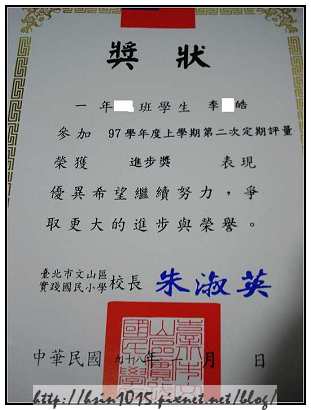 獎狀
一年 班學生 李 皓
參加 97學年度上學期第二次定期評量
榮獲 進步獎 表現
優異希望繼續努力,爭
取更大的進步與榮譽。
臺北市文山區
實踐國民小學 校長 朱淑英
中華民國 九十八年 一月 日
http://hsin1015.pixnet.net/blog/